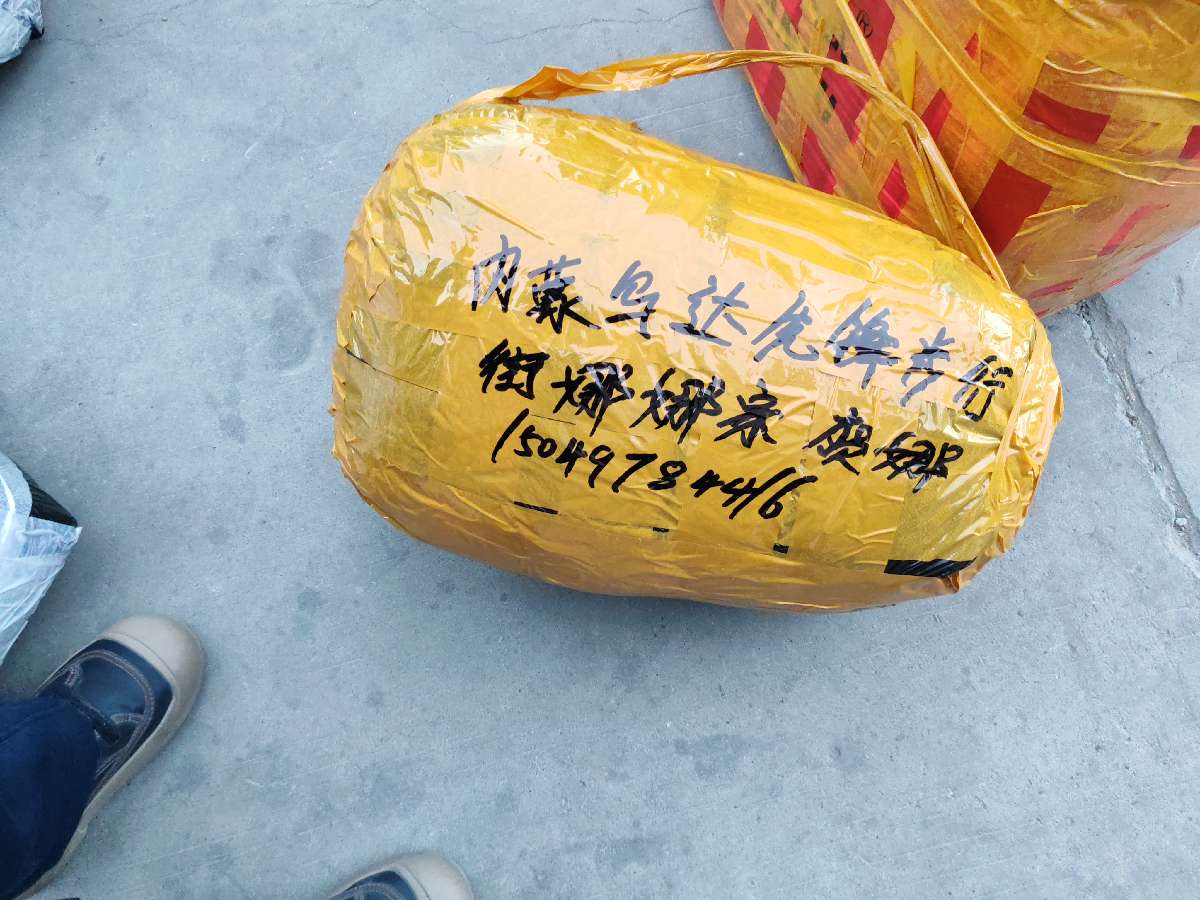 内蒙乌达先锋步行
街娜娜家 奕娜
15049784416